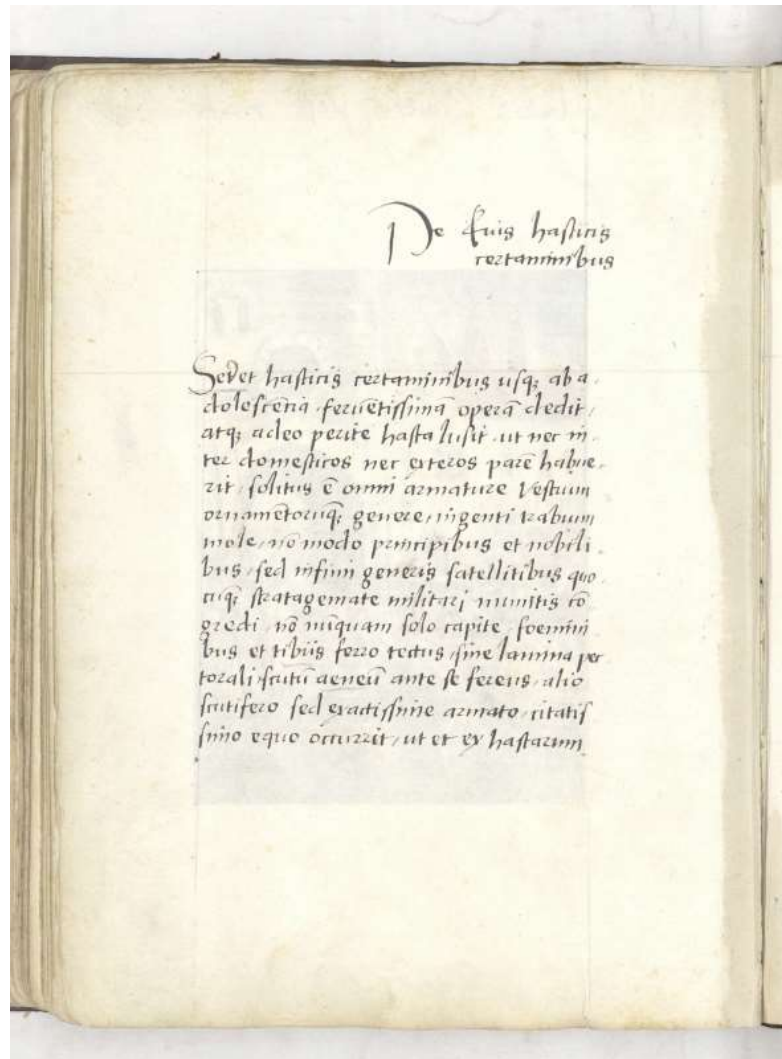 De suis hasticis
certaminibus
Sed et hasticis certaminibus usq; ab a
dolescētia feruētissimā operā dedit,
atq; adeo perite hasta lusit, ut nec in
ter domesticos nec exteros parē habue
rit, solitus ē omni armature Vestium
ornamētorūq; genere, ingenti trabium
mole, nō modo principibus et nobili
bus, sed infimi generis satellitibus quo
cūq; stratagemate militari munitis cō
gredi, nō nūquam solo capite, foemini
bus et tibiis ferro tectus, sine lamina pec
torali, scutū aeneū ante se ferens, alio
scutifero sed exactissime armato, citatis
simo equo occurrit, ut et ex hastarum